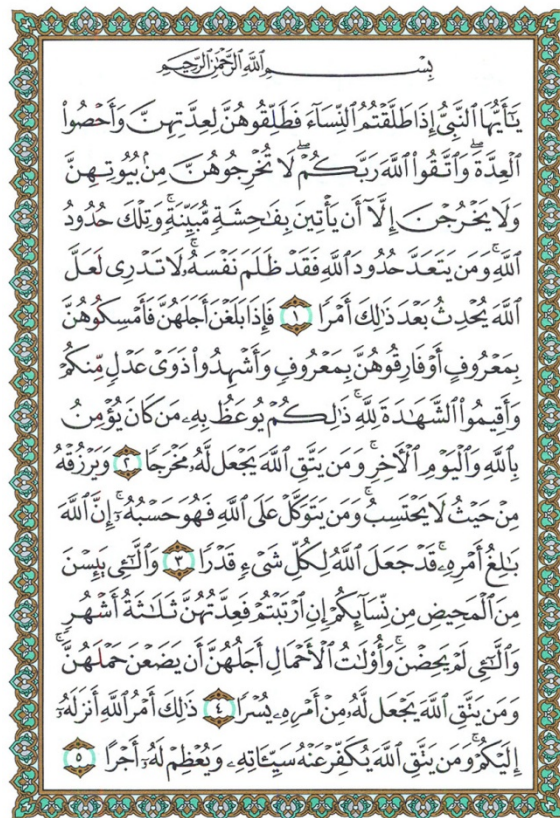 بِسْمِ اللَّهِ الرَّحْمَٰنِ الرَّحِيمِ
يَٰٓأَيُّهَا النَّبِيُّ إِذَا طَلَّقْتُمُ النِّسَآءَ فَطَلِّقُوهُنَّ لِعِدَّتِهِنَّ وَأَحْصُوا۟
الْعِدَّةَ ۖ وَاتَّقُوا۟ اللَّهَ رَبَّكُمْ ۖ لَا تُخْرِجُوهُنَّ مِنۢ بُيُوتِهِنَّ
وَلَا يَخْرُجْنَ إِلَّآ أَن يَأْتِينَ بِفَٰحِشَةٍ مُّبَيِّنَةٍ ۚ وَتِلْكَ حُدُودُ
اللَّهِ ۚ وَمَن يَتَعَدَّ حُدُودَ اللَّهِ فَقَدْ ظَلَمَ نَفْسَهُۥ ۚ لَا تَدْرِى لَعَلَّ
اللَّهَ يُحْدِثُ بَعْدَ ذَٰلِكَ أَمْرًا ١ فَإِذَا بَلَغْنَ أَجَلَهُنَّ فَأَمْسِكُوهُنَّ
بِمَعْرُوفٍ أَوْ فَارِقُوهُنَّ بِمَعْرُوفٍ وَأَشْهِدُوا۟ ذَوَىْ عَدْلٍ مِّنكُمْ
وَأَقِيمُوا۟ الشَّهَٰدَةَ لِلَّهِ ۚ ذَٰلِكُمْ يُوعَظُ بِهِۦ مَن كَانَ يُؤْمِنُ
بِاللَّهِ وَالْيَوْمِ الْـَٔاخِرِ ۚ وَمَن يَتَّقِ اللَّهَ يَجْعَل لَّهُۥ مَخْرَجًا ٢ وَيَرْزُقْهُ
مِنْ حَيْثُ لَا يَحْتَسِبُ ۚ وَمَن يَتَوَكَّلْ عَلَى اللَّهِ فَهُوَ حَسْبُهُۥٓ ۚ إِنَّ اللَّهَ
بَٰلِغُ أَمْرِهِۦ ۚ قَدْ جَعَلَ اللَّهُ لِكُلِّ شَىْءٍ قَدْرًا ٣ وَالَّٰٓـِٔى يَئِسْنَ
مِنَ الْمَحِيضِ مِن نِّسَآئِكُمْ إِنِ ارْتَبْتُمْ فَعِدَّتُهُنَّ ثَلَٰثَةُ أَشْهُرٍ
وَالَّٰٓـِٔى لَمْ يَحِضْنَ ۚ وَأُو۟لَٰتُ الْأَحْمَالِ أَجَلُهُنَّ أَن يَضَعْنَ حَمْلَهُنَّ ۚ
وَمَن يَتَّقِ اللَّهَ يَجْعَل لَّهُۥ مِنْ أَمْرِهِۦ يُسْرًا ٤ ذَٰلِكَ أَمْرُ اللَّهِ أَنزَلَهُۥٓ
إِلَيْكُمْ ۚ وَمَن يَتَّقِ اللَّهَ يُكَفِّرْ عَنْهُ سَيِّـَٔاتِهِۦ وَيُعْظِمْ لَهُۥٓ أَجْرًا ٥